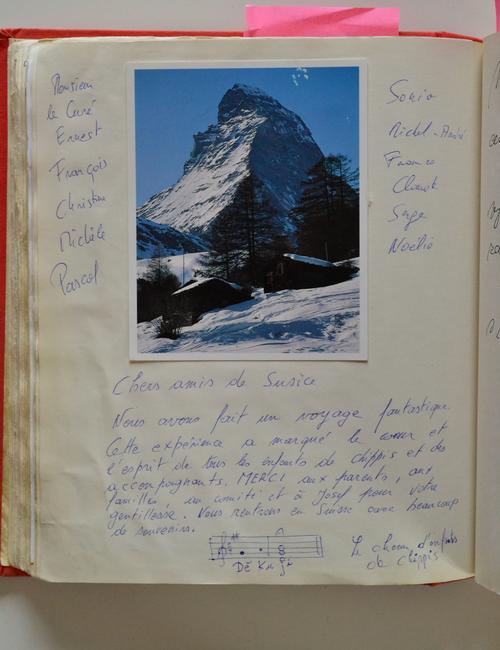 Monsieur
le Curé
Ernest
François
Christian
Michèle
Pascal
Sonia
Michel-André
France
Claude
Serge
Noélie
Chers amis de Susice
Nous avons fait un voyage fantastique
Cette expérience a marqué le coeur et
l'esprit de tous les enfants de Chippis et des
accompagnants. MERCI aux parents, aux
familles, au comité et à Josef pour votre
gentillesse. Nous rentrons en Suisse avec beaucoup
de souvenirs.
Le choeur d'enfants
de Chippis